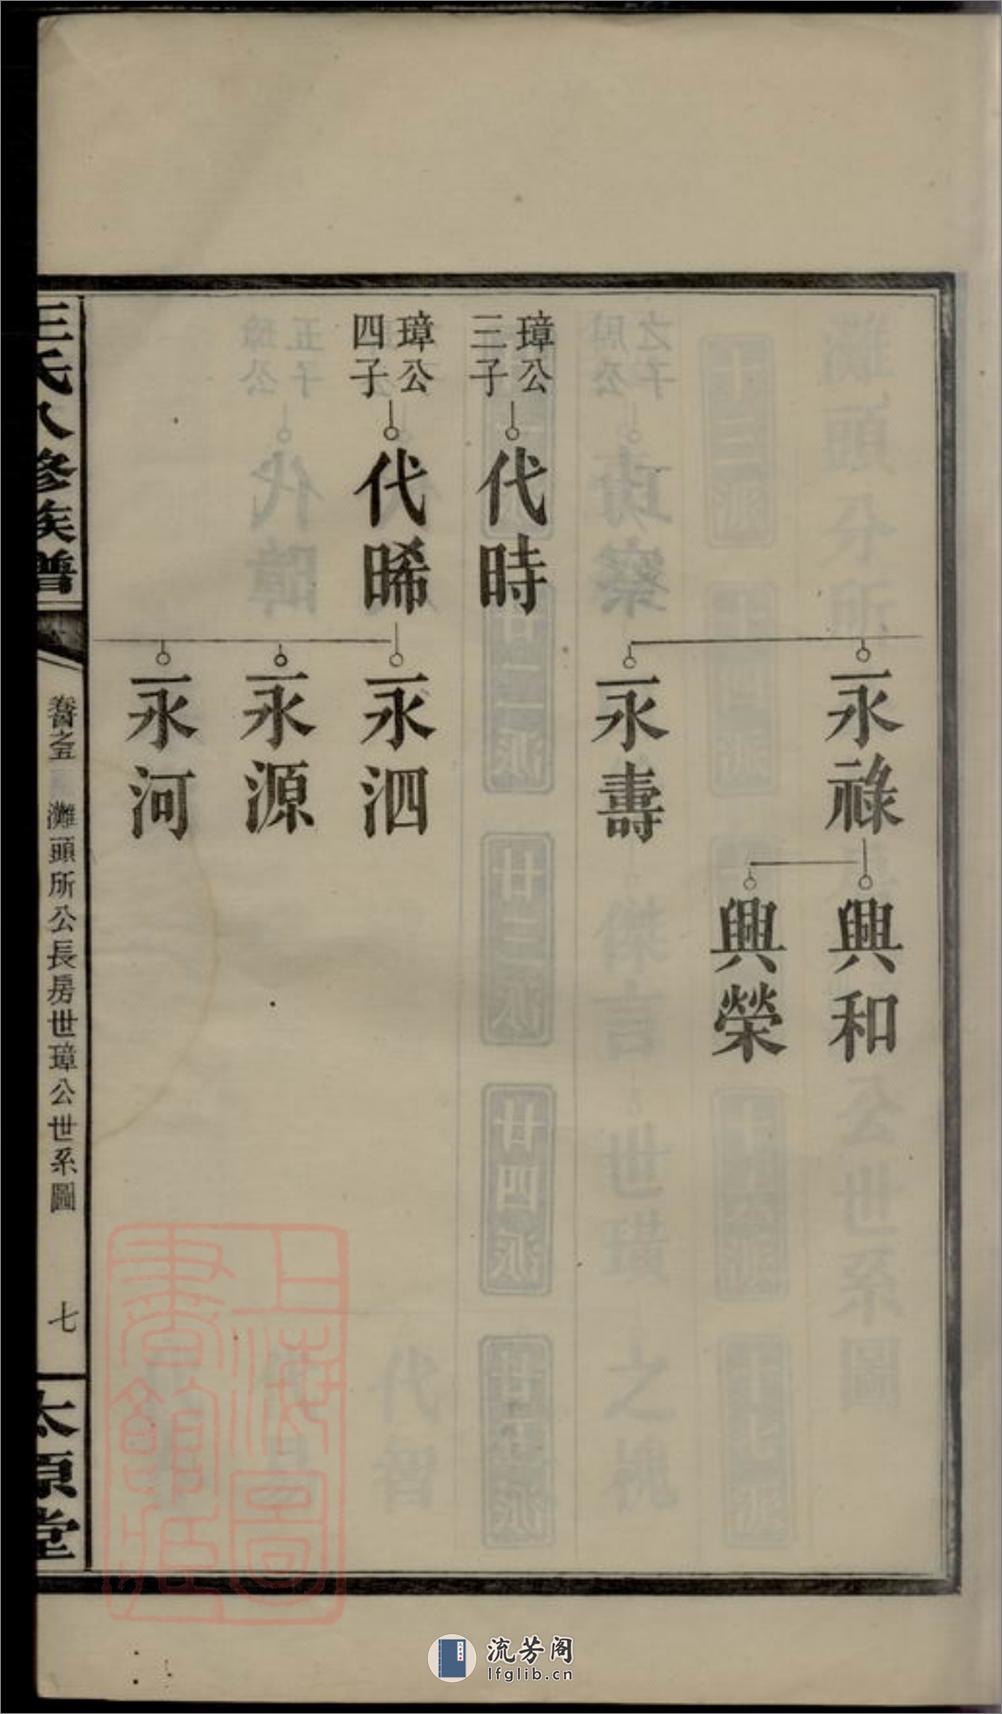 永祿
興和
興榮
永壽
璋公
三子
代時
璋公
四子
代晞
永泗
永源
永河
王氏八修族譜
卷之五
灘頭所公長房世璋公世系圖
七
太原堂
上海圖書館藏
流芳阁
lfglib.cn